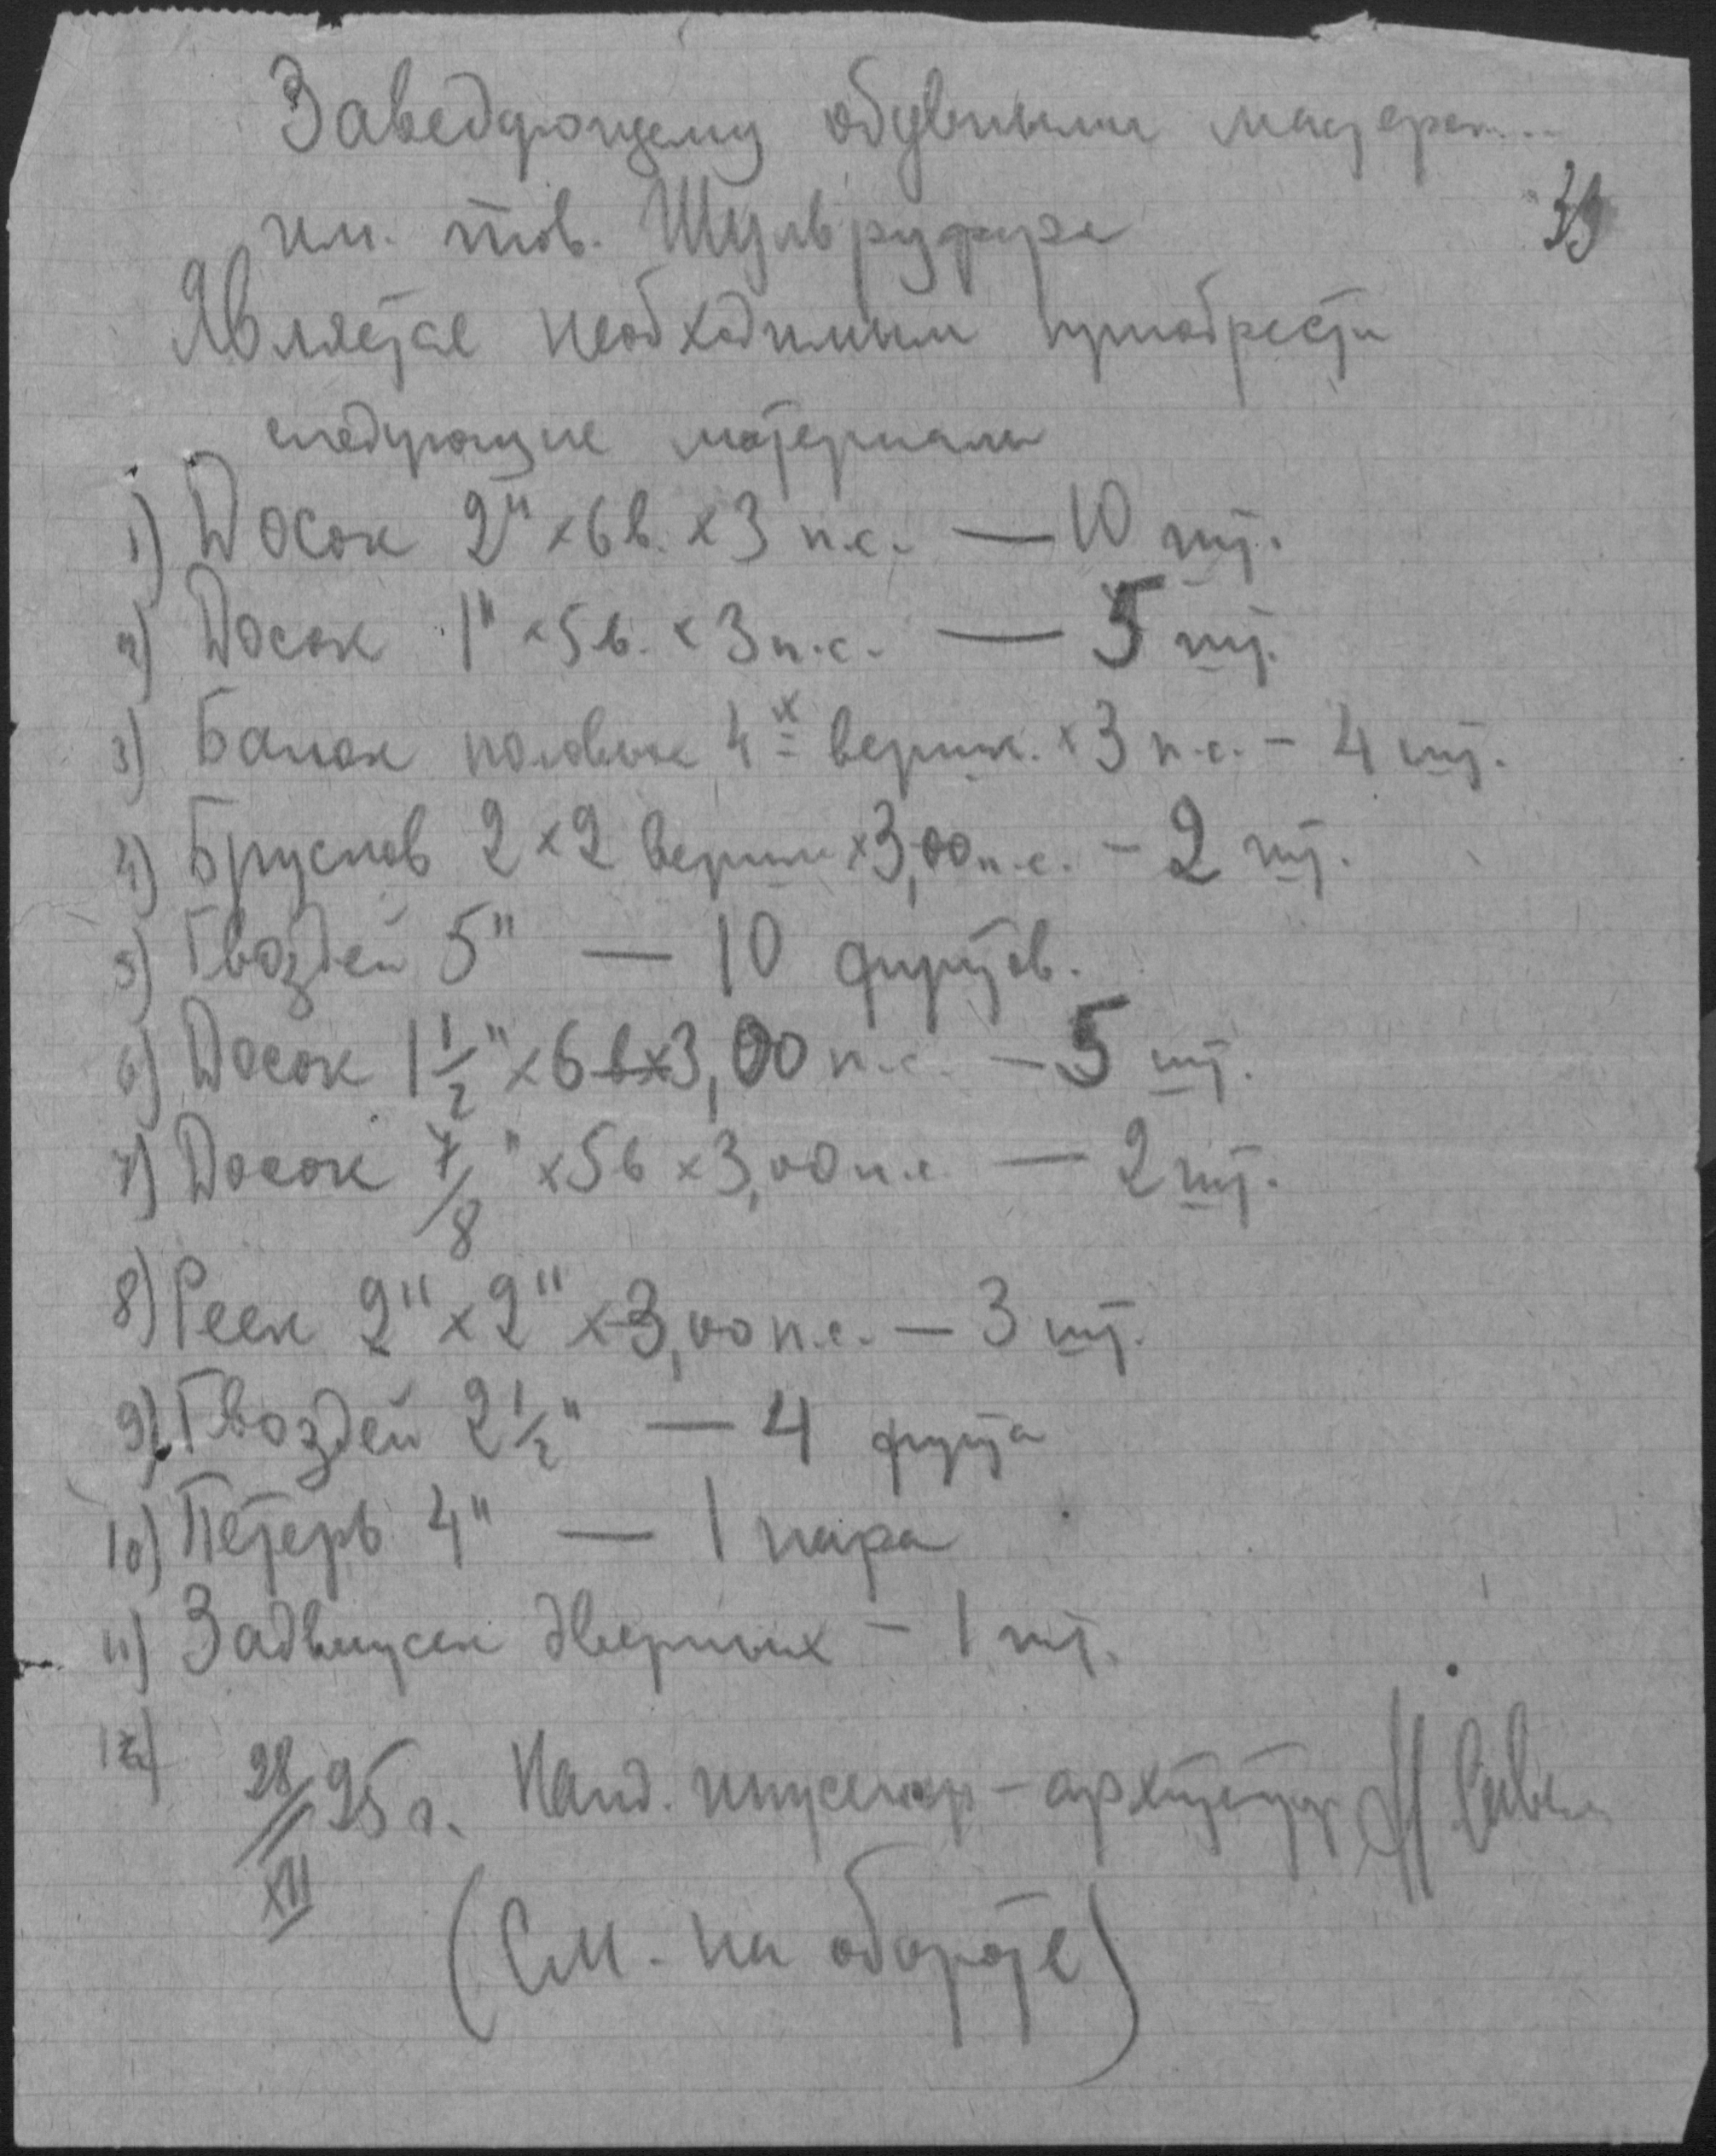 Заведующему обувными мастерск...
39
им. тов.
Является необходимым приобрести
следующие материалы
1) Досок 2" × 6 в. × 3 п.с. — 10 шт.
2) Досок 1" × 5 в. × 3 п.с. — 5 шт.
3) Балок половых 4х вершк. × 3 п.с. – 4 шт.
4) Брусков 2 × 2 вершк × 3,00 п.с. – 2 шт.
5) Гвоздей 5" — 10 фунтов.
6) Досок 1 1/2" × 6 в × 3,00 п.с. — 5 шт.
7) Досок 7/8" × 5 в × 3,00 п.с. — 2 шт.
8) Реек 2" × 2" × 3,00 п.с. — 3 шт.
9) Гвоздей 2 1/2" — 4 фунта
10) Петерь 4" — 1 пара
11) Задвижек дверных – 1 шт.
12)
28/XII 25 г. Наид. инженер-архитектор
(См. на обороте)